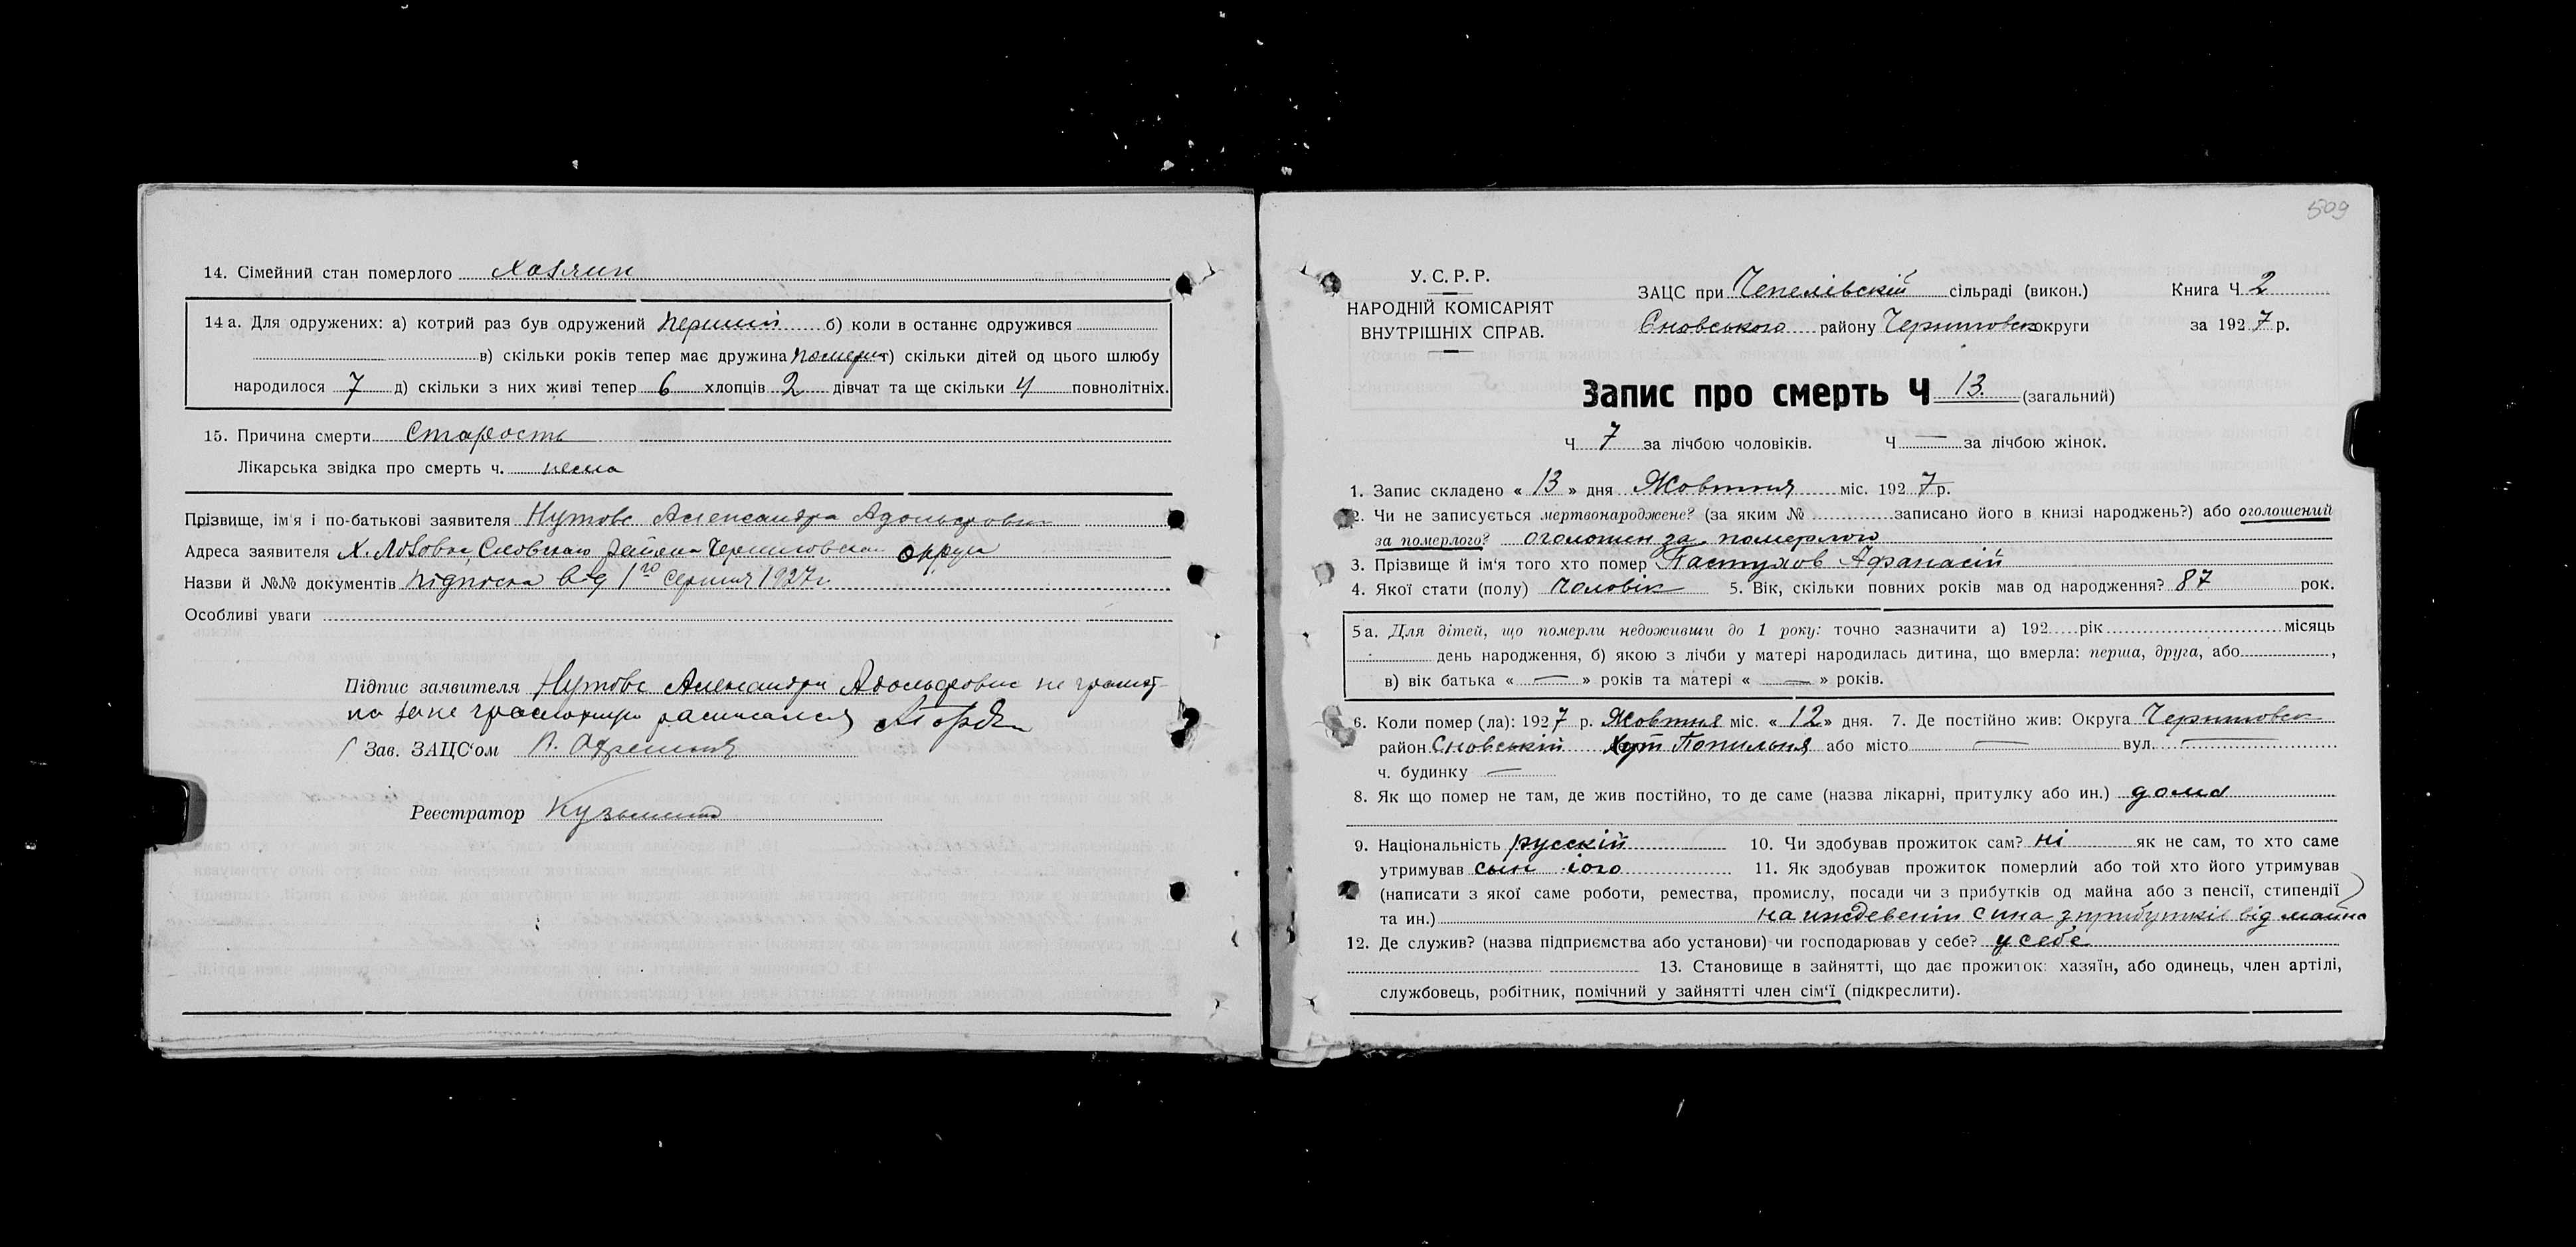 14. Сімейний стан померлого Хазяин
14 а. Для одружених: а) котрий раз був одружений перший б) коли в останнє одружився
в) скільки років тепер має дружина померла г) скільки дітей од цього шлюбу
народилося 7 д) скільки з них живі тепер 6 хлопців 2 дівчат та ще скільки 4 повнолітніх.
15. Причина смерти Старость
Лікарська звідка про смерть ч. нема
Прізвище, ім'я і по-батькові заявителя Александра Адольфович
Адреса заявителя Х. Лозовая, Сновского района Черниговскои округи
Назви й №№ документів підписка від 1го серпня 1927 г.
Особливі уваги
Підпис заявителя Александра Адольфович не грамот-
на за не грамотную расписался
Зав. ЗАЦС'ом
Реєстратор
509
У. С. Р. Р.
НАРОДНІЙ КОМІСАРІЯТ
ВНУТРІШНІХ СПРАВ.
ЗАЦС при Чепелівській сільраді (викон.) Книга Ч 2
Сновського району Черниговск округи за 1927 р.
Запис про смерть Ч 13. (загальний)
Ч 7 за лічбою чоловіків. Ч — за лічбою жінок.
1. Запис складено « 13 » дня Жовтня міс. 1927 р.
2. Чи не записується мертвонароджене? (за яким № записано його в книзі народжень?) або оголошений
за померлого? оголошен за померлого
3. Прізвище й ім'я того хто помер Пастухов Афанасій
4. Якої стати (полу) Чоловік 5. Вік, скільки повних років мав од народження? 87 рок.
5 а. Для дітей, що померли недоживши до 1 року: точно зазначити а) 192 рік місяць
день народження, б) якою з лічби у матері народилась дитина, що вмерла: перша, друга, або ,
в) вік батька « — » років та матері « — » років.
6. Коли помер (ла): 1927 р. Жовтня міс. « 12 » дня. 7. Де постійно жив: Округа Черниговск
район Сновський Хут Попильня або місто — вул. —
ч. будинку —
8. Як що помер не там, де жив постійно, то де саме (назва лікарні, притулку або ин.) дома
9. Національність русскій 10. Чи здобував прожиток сам? ні як не сам, то хто саме
утримував сын його 11. Як здобував прожиток померлий або той хто його утримував
(написати з якої саме роботи, ремества, промислу, посади чи з прибутків од майна або з пенсії, стипендії
та ин.) на иждевенін сина з прибутків від майна
12. Де служив? (назва підприємства або установи) чи господарював у себе? у себе
13. Становище в зайнятті, що дає прожиток: хазяїн, або одинець, член артілі,
службовець, робітник, помічний у зайнятті член сім'ї (підкреслити).